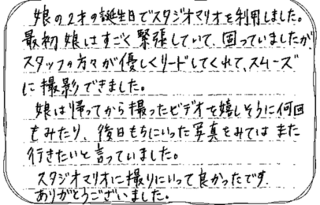 娘の2才の誕生日でスタジオマリオを利用しました。
最初娘はすごく緊張していて、困っていましたが
スタッフの方々が優しくリードしてくれて、スムーズ
に撮影できました。
娘は帰ってから撮ったビデオを嬉しそうに何回
もみたり、後日もらいにいった写真をみては また
行きたいと言っていました。
スタジオマリオに撮りにいって良かったです
ありがとうございました。